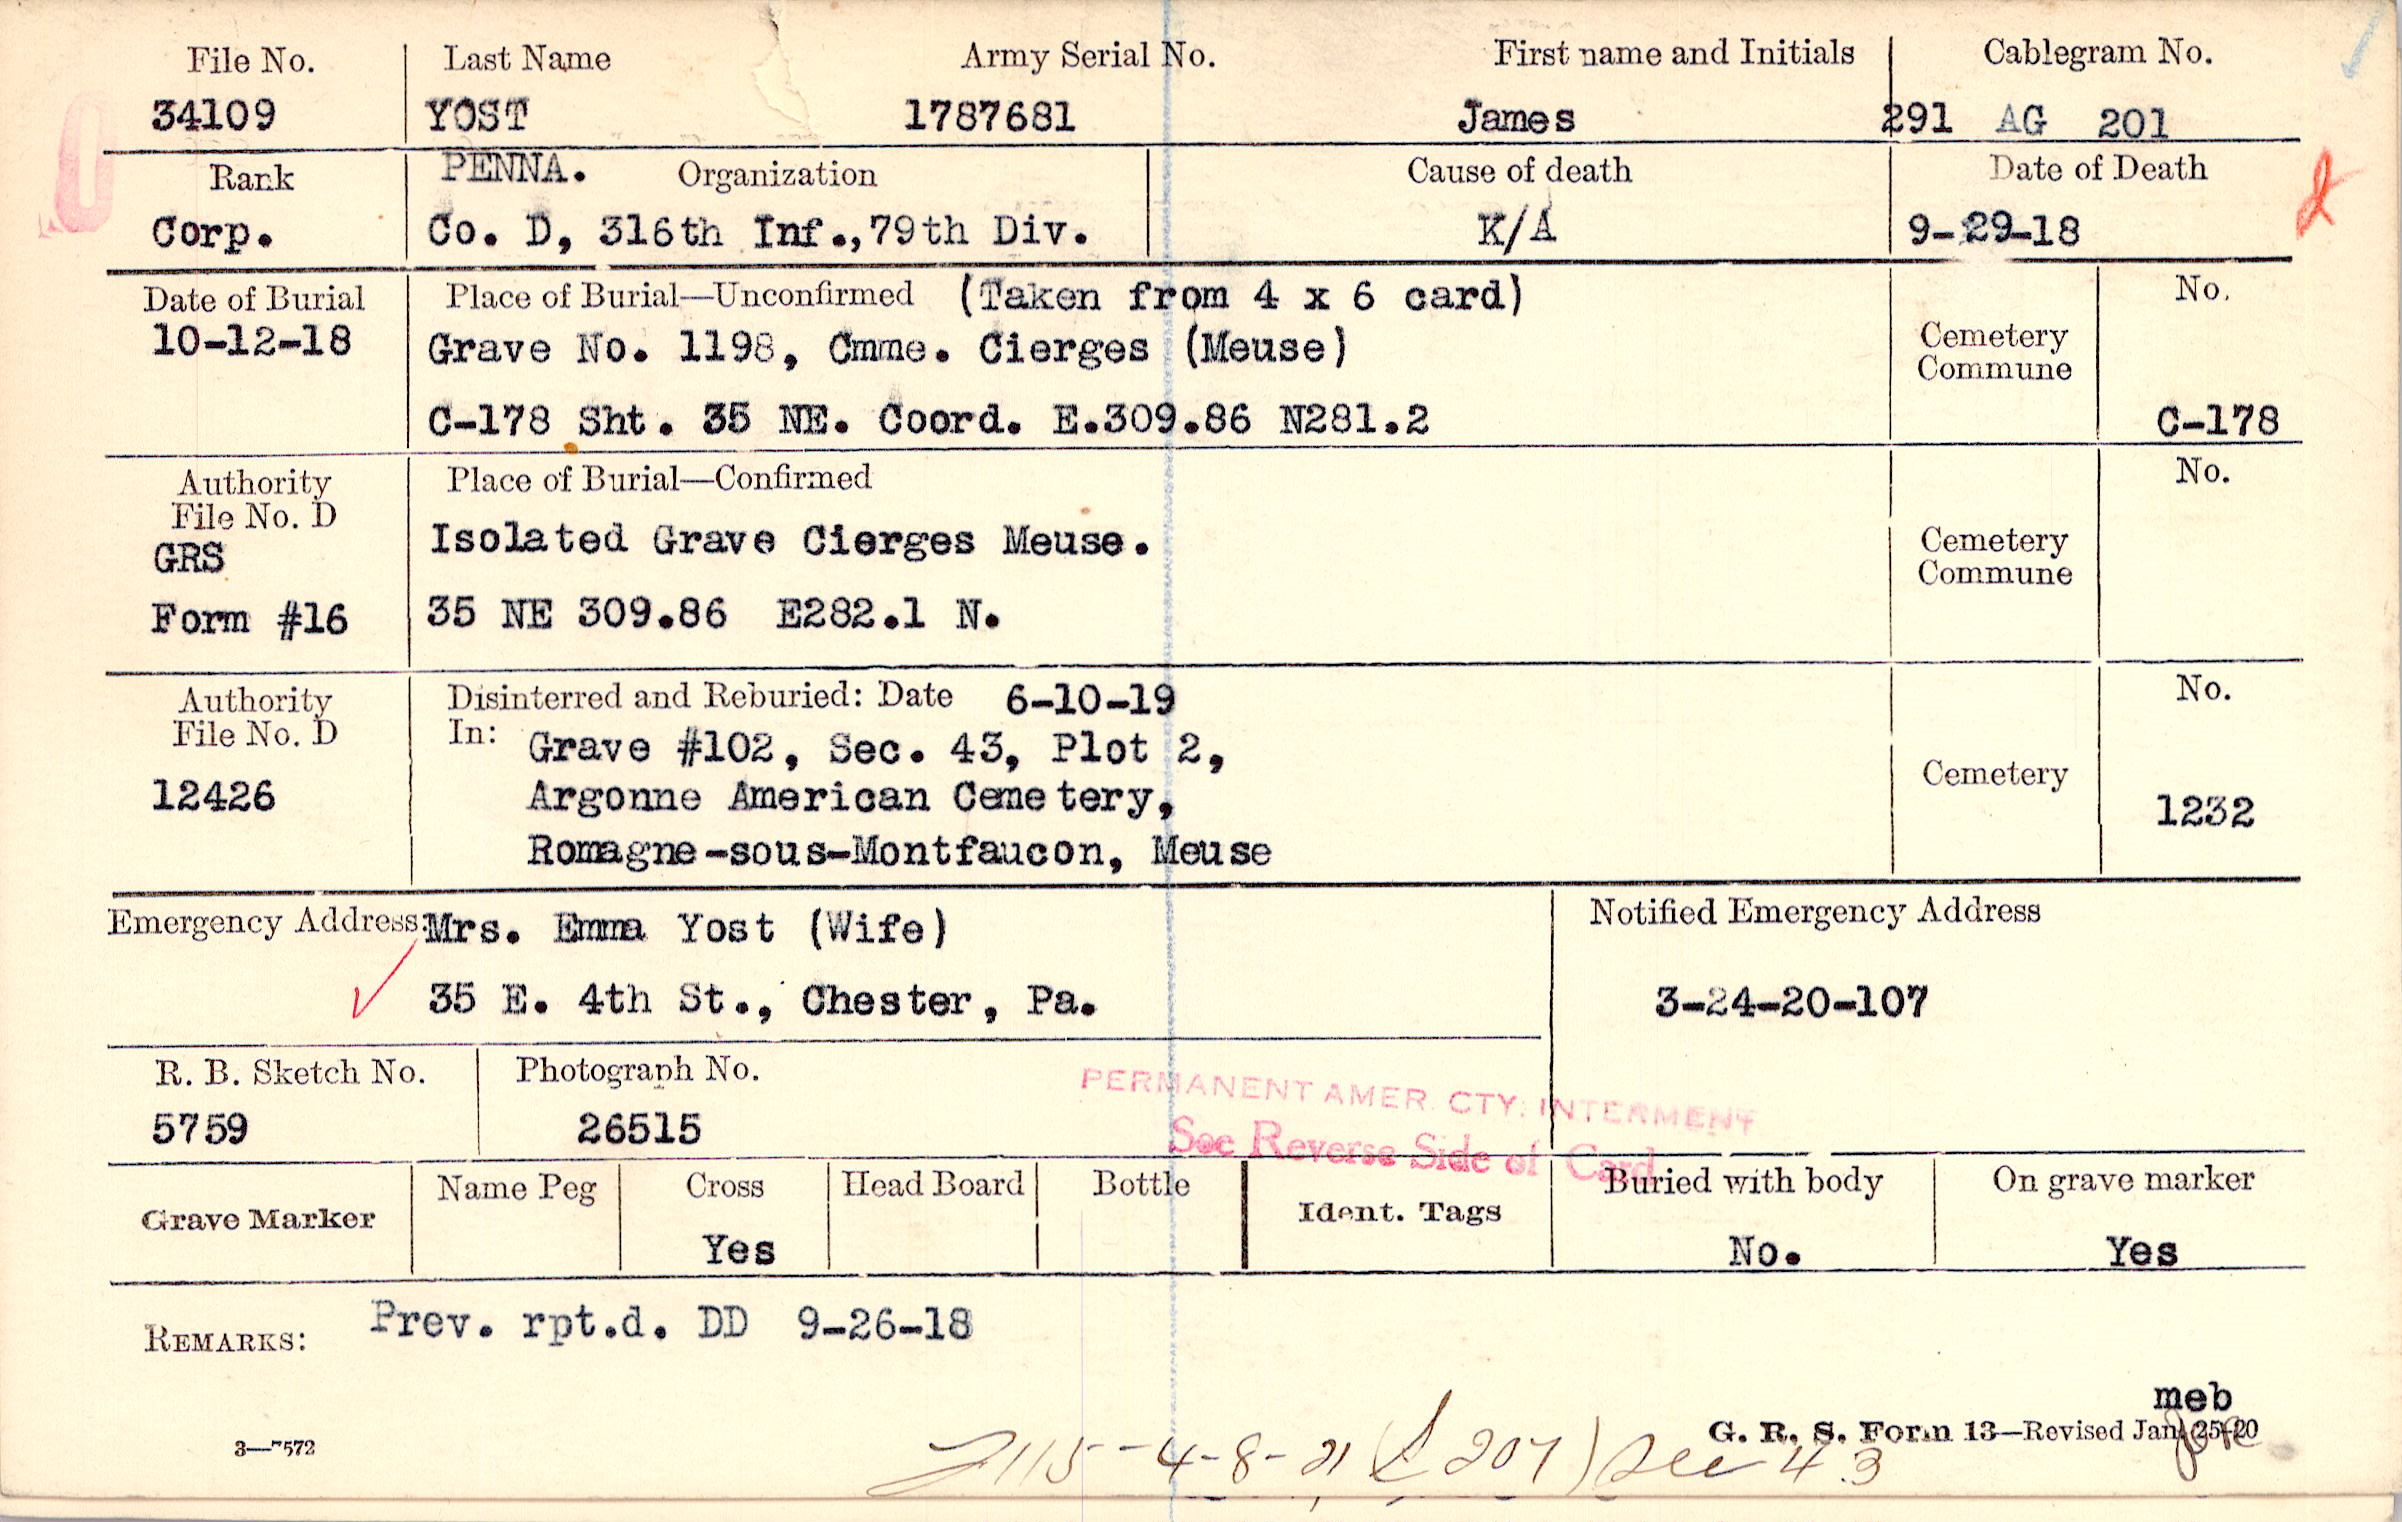 File No. Last Name Army Serial No. First name and Initials Cablegram No.
34109 YOST 1787681 James 291 AG 201
Rank PENNA. Organization Cause of death Date of Death
Corp. Co. D, 316th Inf.,79th Div. K/A 9-29-18
Date of Burial Place of Burial—Unconfirmed (Taken from 4 x 6 card) No.
10-12-18 Grave No. 1198, Cmme. Cierges (Meuse) Cemetery
Commune
C-178 Sht. 35 NE. Coord. E.309.86 N281.2 C-178
Authority Place of Burial—Confirmed No.
File No. D
GRS Isolated Grave Cierges Meuse. Cemetery
Commune
Form #16 35 NE 309.86 E282.1 N.
Authority Disinterred and Reburied: Date 6-10-19 No.
File No. D In: Grave #102, Sec. 43, Plot 2,
12426 Argonne American Cemetery, Cemetery 1232
Romagne-sous-Montfaucon, Meuse
Emergency Address: Mrs. Emma Yost (Wife) Notified Emergency Address
35 E. 4th St., Chester, Pa. 3-24-20-107
R. B. Sketch No. Photograph No.
5759 26515
PERMANENT AMER. CTY. INTERMENT
See Reverse Side of Card
Grave Marker Name Peg Cross Head Board Bottle Ident. Tags Buried with body On grave marker
Yes No. Yes
REMARKS: Prev. rpt.d. DD 9-26-18
meb
3—7572 G. R. S. Form 13—Revised Jan. 25-20
115-4-8-21 ( 207) Sec 43